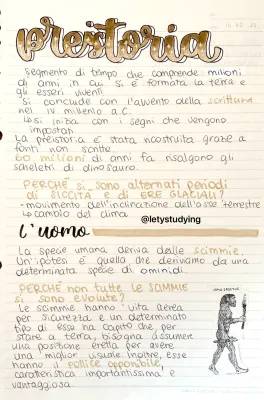 preistoria
segmento di tempo che comprende milioni
di anni in cui si è formata la terra e
gli esseri viventi
si conclude con l'avvento della scrittura
nel IV millenio a.C.
↳ si inizia con i segni che vengono
impostati
La preistoria è stata ricostruita grazie a
fonti non scritte
60 milioni di anni fa risalgono gli
scheletri di dinosauro.
PERCHÉ si sono alternati periodi
di SICCITÀ e di ERE GLACIALI?
-movimento dell'inclinazione dell'asse terrestre
↳ cambio del clima
@letystudying
l'uomo
La specie umana deriva dalle scimmie.
Un'ipotesi è quella che deriviamo da una
determinata specie di ominidi.
PERCHÉ non tutte le SCIMMIE
si sono evolute?
Le scimmie hanno vita aerea
per sicurezza e un determinato
tipo di esse ha capito che per
stare a terra, bisogna assumere
una posizione eretta per avere
una miglior visuale. Inoltre, esse
hanno il pollice opponibile,
caratteristica importantissima e
vantaggiosa.